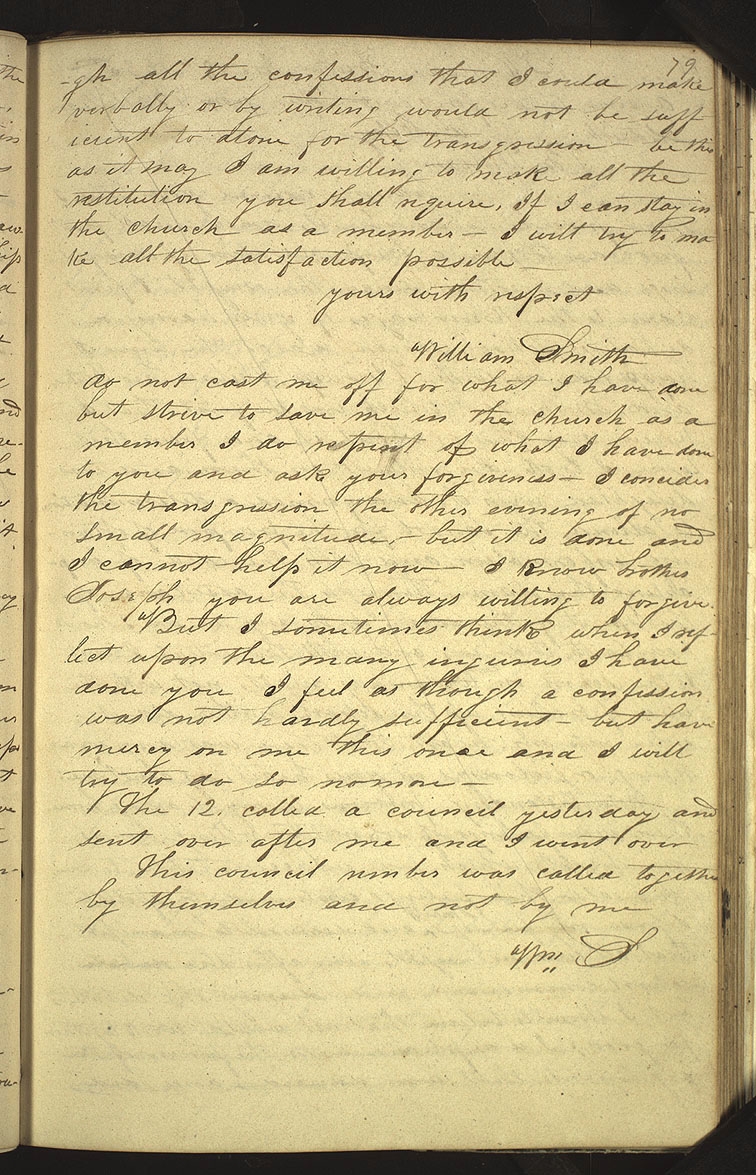 79
-gh all the confessions that I could make
verbally or by writing would not be suff
icient to atone for the transgression— be this
as it may I am willing to make all the
restitution you shall require, If I can stay in
the church as a member— I will try to ma
ke all the satisfaction possible—
yours with respect
William Smith
do not cast me off for what I have done
but strive to save me in the church as a
member I do repent of what I have done
to you and ask your forgiveness— I concider
the transgression the other evening of no
small magnitude,— but it is done and
I cannot help it now— I know brother
Joseph you are always willing to forgive.
But I sometimes think when I ref-
lect upon the many injuries I have
done you I feel as though a confession
was not hardly sufficient— but have
mercy on me this once and I will
try to do so nomore—
The 12. called a council yesterday and
sent over after me and I went over
This council was called together
by themselves and not by me
Wm S